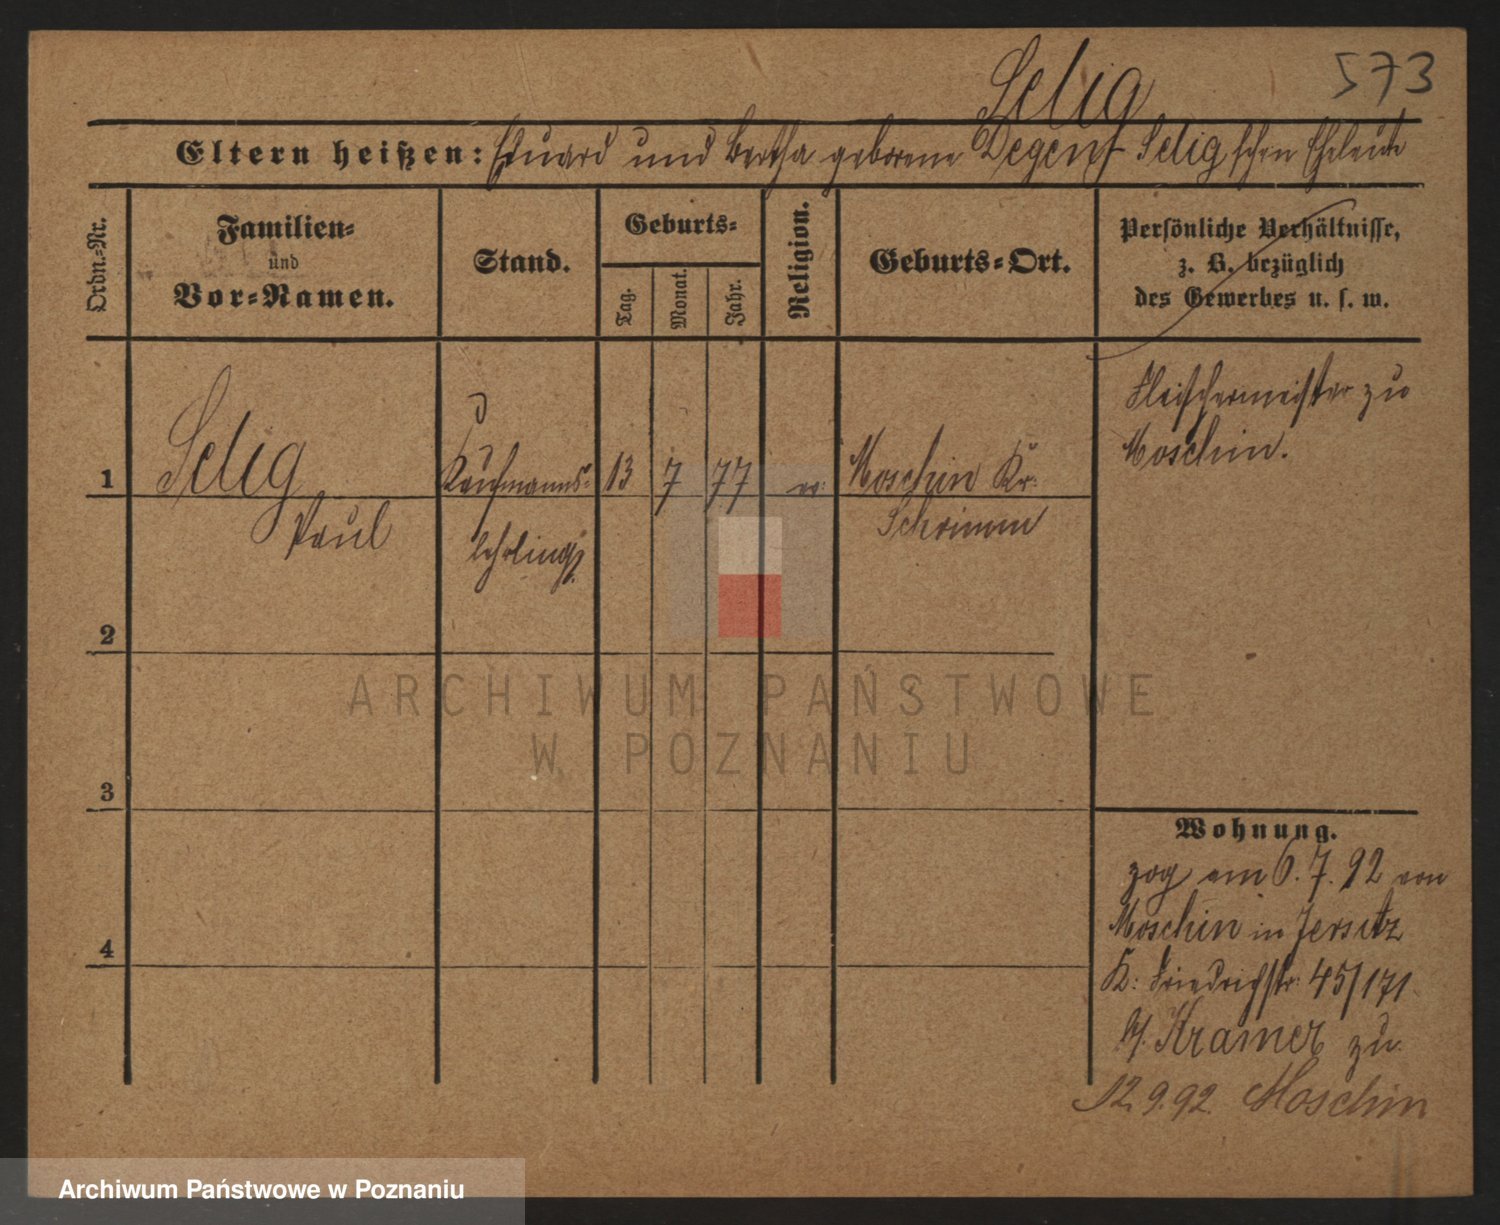 Selig
573
Eltern heißen: Eduard und Bertha geborene Degen Selig schen Eheleute
Ordn.-Nr.
Familien-
und
Vor-Namen.
Stand.
Geburts-
Tag.
Monat.
Jahr.
Religion.
Geburts-Ort.
Persönliche Verhältnisse,
z. B. bezüglich
des Gewerbes u. s. w.
Fleischermeister zu
Moschin.
1
Selig
Paul
Kaufmanns-
lehrling
13
7
77
Moschin Kr:
Schrimm
2
3
4
Wohnung.
zog am 6.7.92 von
Moschin in Jersitz
K: Friedrichstr: 45/171
Kramer zu.
12.9.92 Moschin
ARCHIWUM PAŃSTWOWE
W POZNANIU
Archiwum Państwowe w Poznaniu